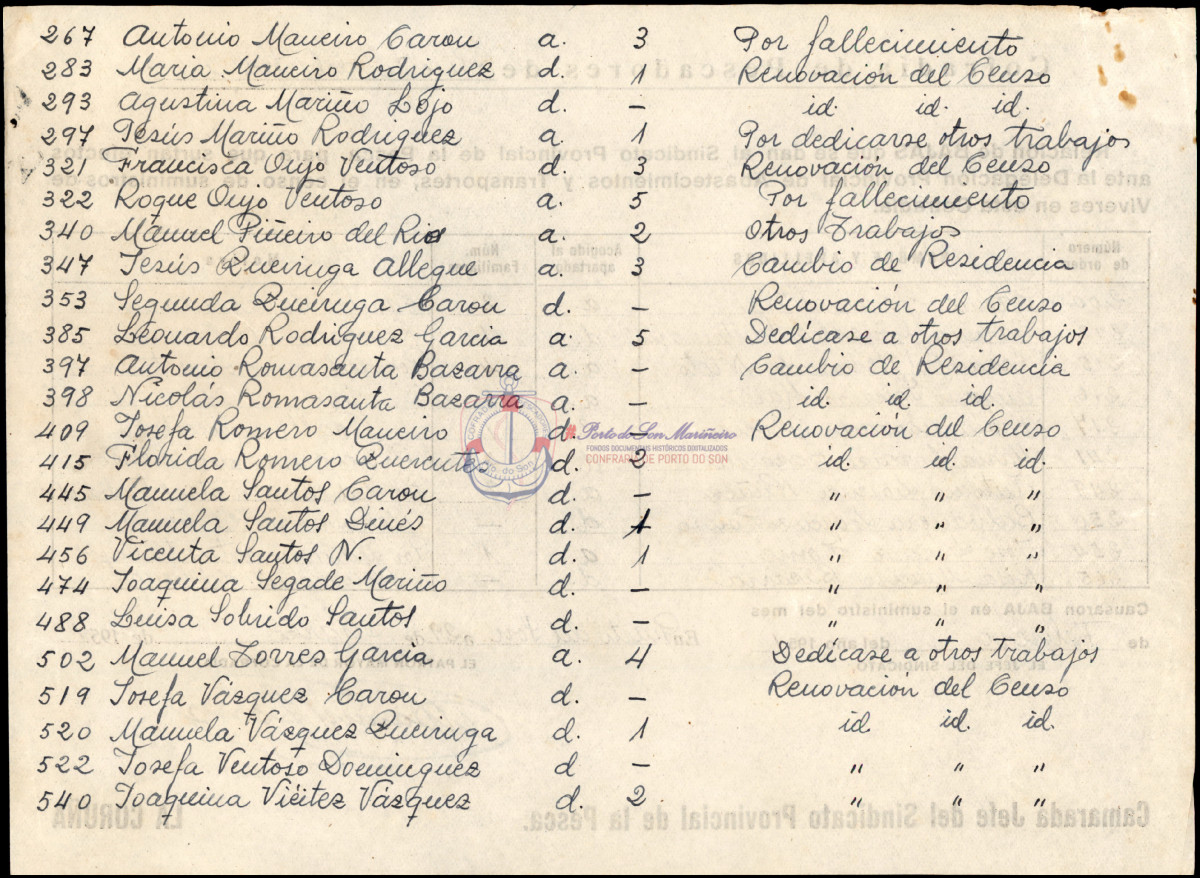 267 Antonio Maneiro Carou a. 3 Por fallecimiento
283 Maria Maneiro Rodriguez d. 1 Renovación del Censo
293 Agustina Mariño Lojo d. – id. id. id.
297 Jesús Mariño Rodriguez a 1 Por dedicarse otros trabajos
321 Francisca Oujo Ventoso d. 3 Renovación del Censo
322 Roque Oujo Ventoso a. 5 Por fallecimiento
340 Manuel Piñeiro del Rio a. 2 Otros Trabajos
347 Jesús Queiruga Allegue a. 3 Cambio de Residencia
353 Segunda Queiruga Carou d. – Renovación del Censo
385 Leonardo Rodriguez Garcia a. 5 Dedícase a otros trabajos
397 Antonio Romasanta Bazarra a. – Cambio de Residencia
398 Nicolás Romasanta Bazarra a. – id. id. id.
409 Josefa Romero Maneiro d. – Renovación del Censo
415 Florida Romero d. 2 id. id. id.
445 Manuela Santos Carou d. – " " "
449 Manuela Santos Dinés d. 1 " " "
456 Vicenta Santos N. d. 1 " " "
474 Joaquina Segade Mariño d. – " " "
488 Luisa Sobrido Santos d. – " " "
502 Manuel Torres Garcia a. 4 Dedícase a otros trabajos
519 Josefa Vázquez Carou d. – Renovación del Censo
520 Manuela Vázquez Queiruga d. 1 id. id. id.
522 Josefa Ventoso Dominguez d – " " "
540 Joaquina Viéitez Vázquez d. 2 " " "
Porto do Son Mariñeiro
FONDOS DOCUMENTAIS HISTÓRICOS DIXITALIZADOS
CONFRARÍA DE PORTO DO SON